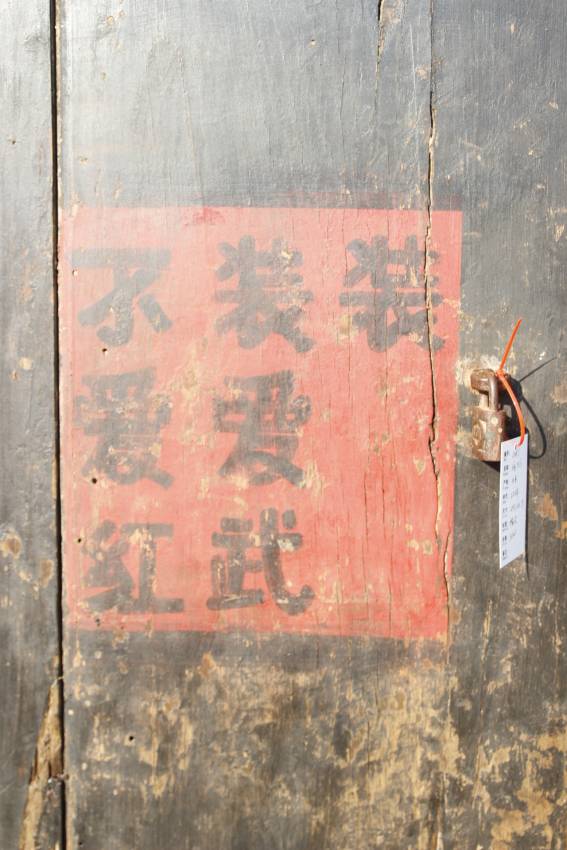 不爱红
装爱武
装